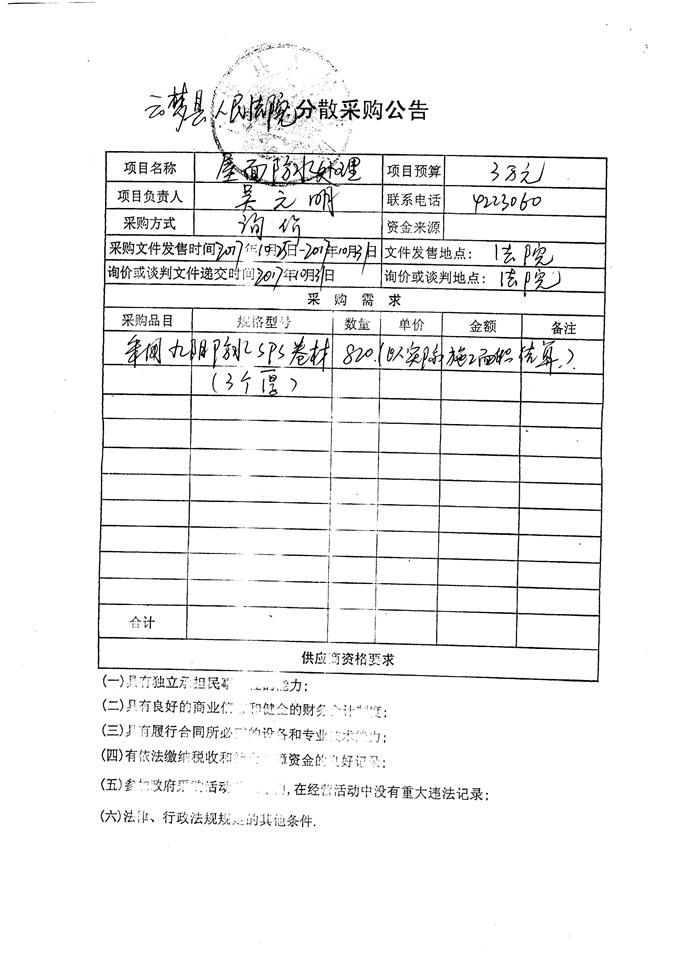 云梦县人民法院分散采购公告
项目名称 屋面防水处理 项目预算 3万元
项目负责人 吴元明 联系电话 4223060
采购方式 询价 资金来源
采购文件发售时间2017年10月25日-2017年10月31日 文件发售地点: 法院
询价或谈判文件递交时间2017年10月31日 询价或谈判地点: 法院
采 购 需 求
采购品目 规格型号 数量 单价 金额 备注
防水SPS卷材 820 (以实际施工面积结算.)
(3个厚)
合计
供应商资格要求
(一)具有独立承担民 的能力;
(二)具有良好的商业信 和健全的财务会计制度;
(三)具有履行合同所必 的设备和专业技术能力;
(四)有依法缴纳税收和 障资金的良好记录;
(五)参加政府采购活动 ,在经营活动中没有重大违法记录;
(六)法律、行政法规规定的其他条件.